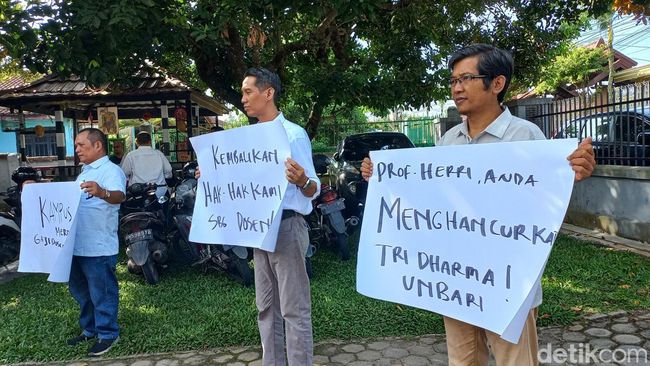 KAMPUS
KEMBALIKAN
HAK-HAK KAMI
SBG DOSEN!
PROF. HERRI, ANDA
MENGHANCURKA
TRI DHARMA!
UNBARI
detikcom